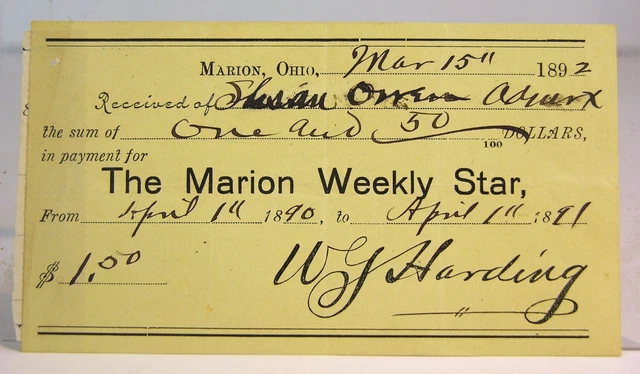 MARION, OHIO, Mar 15" 1892
Received of Owen
the sum of One and 50/100 DOLLARS,
in payment for
The Marion Weekly Star,
From April 1" 1890, to April 1" 1891
$ 1.50 WG Harding